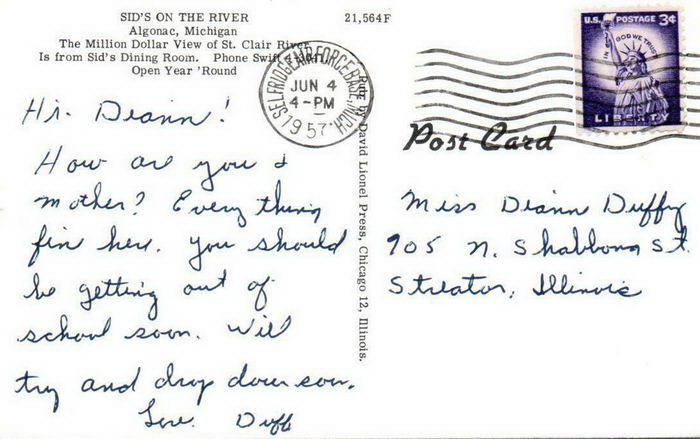 SID'S ON THE RIVER
Algonac, Michigan
The Million Dollar View of St. Clair River
Is from Sid's Dining Room. Phone Swift 4-
Open Year 'Round
21,564F
SELFRIDGE AIR FORCE BASE, MICH.
JUN 4
4-PM
1957
U.S. POSTAGE 3¢
IN GOD WE TRUST
LIBERTY
Post Card
by David Lionel Press, Chicago 12, Illinois.
Hi. Diann!
How are you &
mother? Every thing
fin here. You should
be getting out of
school soon. Will
try and drop down soon.
Love. Duff
Miss Diann Duffy
905 N. Shabbona St.
Streator, Illinois